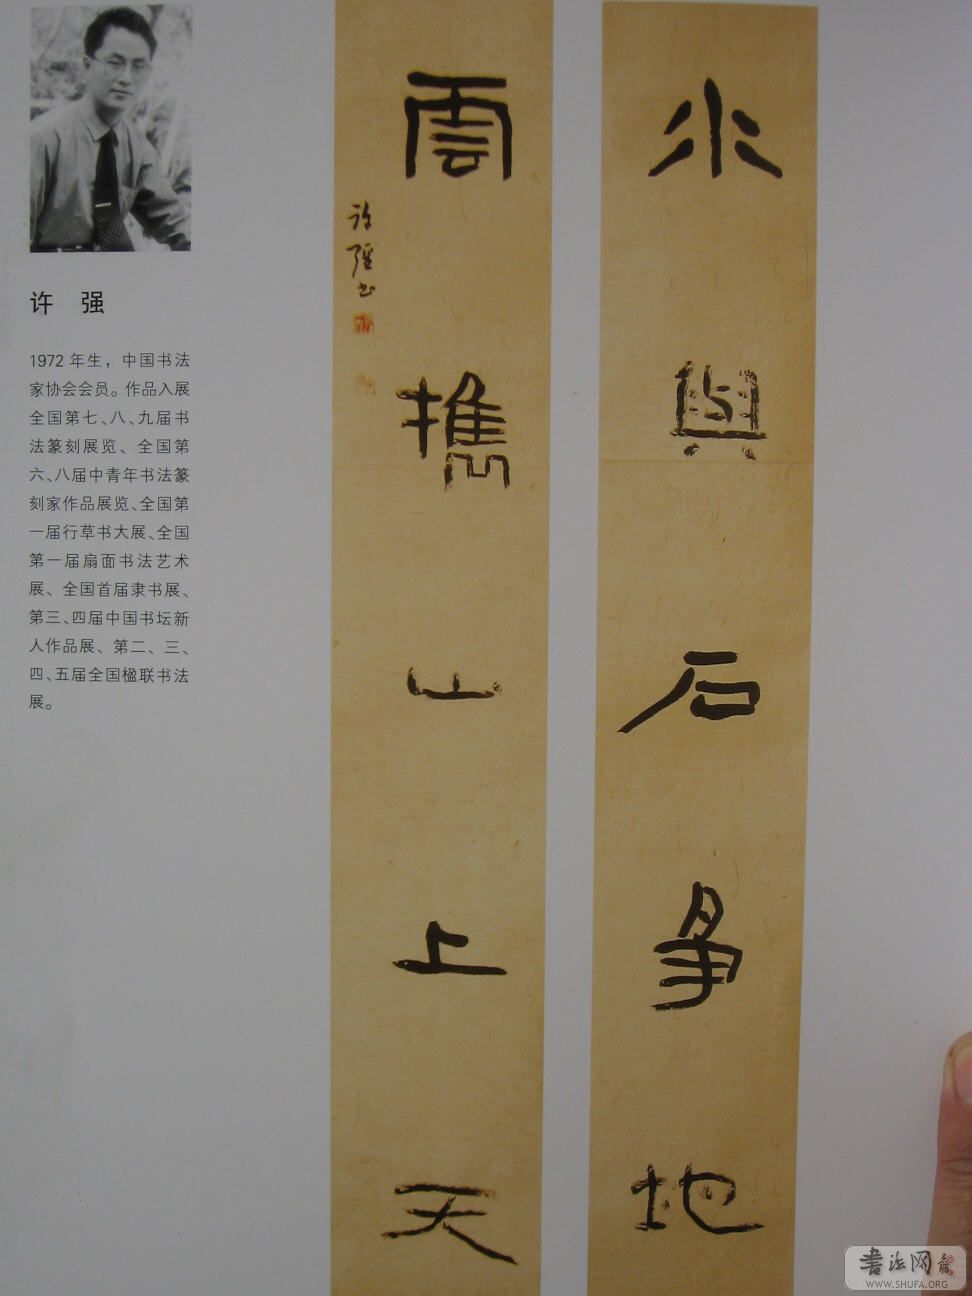 水與石爭地
雲攜山上天
许强书
许 强
1972 年生，中国书法
家协会会员。作品入展
全国第七、八、九届书
法篆刻展览、全国第
六、八届中青年书法篆
刻家作品展览、全国第
一届行草书大展、全国
第一届扇面书法艺术
展、全国首届隶书展、
第三、四届中国书坛新
人作品展、第二、三、
四、五届全国楹联书法
展。
书法网
WWW.SHUFA.ORG